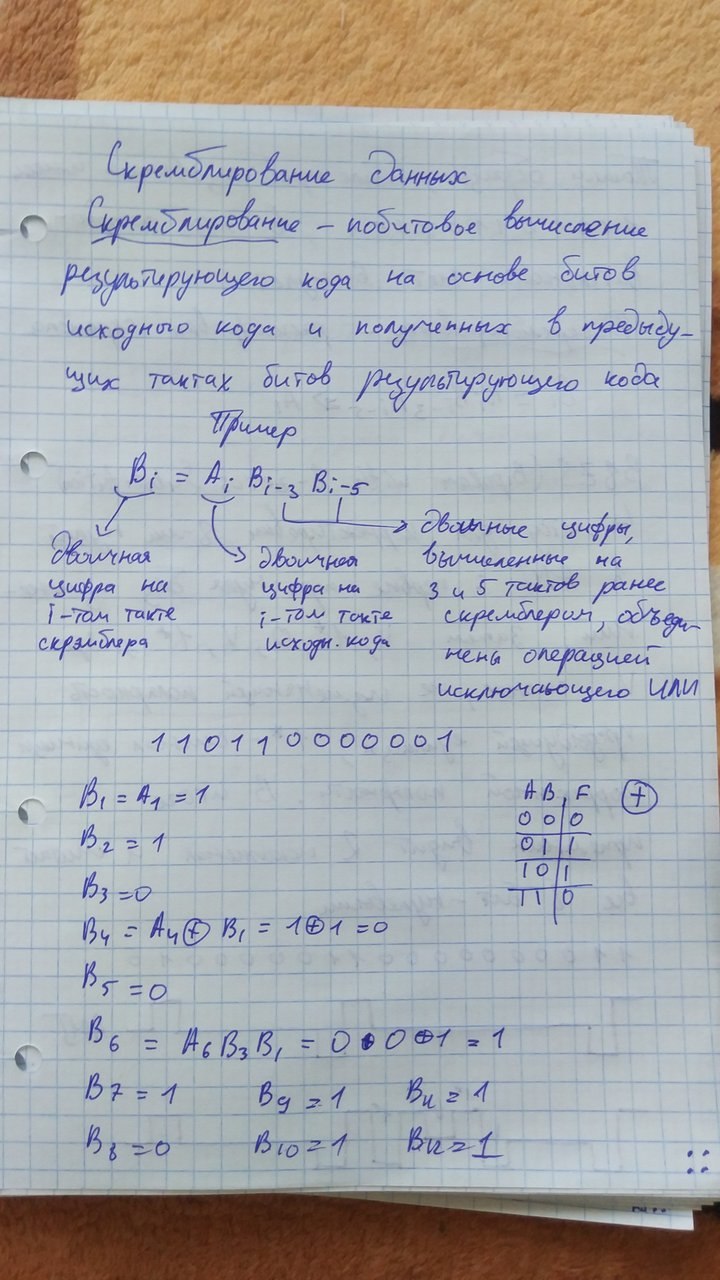 Скремблирование данных
Скремблирование – побитовое вычисление
результирующего кода на основе битов
исходного кода и полученных в предыду-
щих тактах битов результирующего кода
Пример
Bi = Ai Bi-3 Bi-5
двоичная
цифра на
i-том такте
скрэмблера
двоичная
цифра на
i-том такте
исходн. кода
двоичные цифры,
вычисленные на
3 и 5 тактов ранее
скремблером, объеди-
нены операцией
исключающего ИЛИ
110110000001
B1 = A1 = 1
B2 = 1
B3 = 0
B4 = A4 ⊕ B1 = 1 ⊕ 1 = 0
B5 = 0
B6 = A6 B3 B1 = 0 ⊕ 0 ⊕ 1 = 1
B7 = 1 B9 = 1 B11 = 1
B8 = 0 B10 = 1 B12 = 1
A B F ⊕
0 0 0
0 1 1
1 0 1
1 1 0